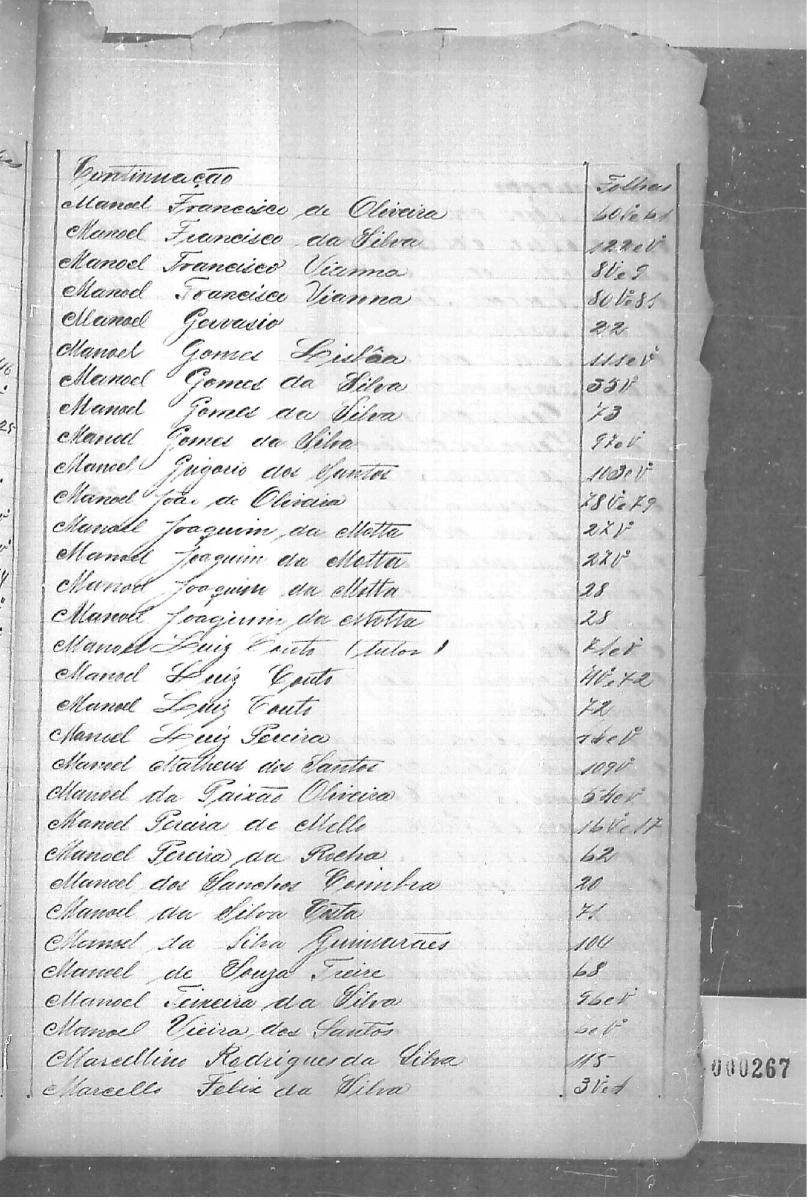 Continuação Folhas
Manoel Francisco de Oliveira 60Vº e 61
Manoel Francisco da Silva 122 e Vº
Manoel Francisco Vianna 8Vº e 9
Manoel Francisco Vianna 80Vº e 81
Manoel Gervasio 22
Manoel Gomes Lisbôa 111 e Vº
Manoel Gomes da Silva 55Vº
Manoel Gomes da Silva 73
Manoel Gomes da Silva 97 e Vº
Manoel Grigorio dos Santos e Vº
Manoel João de Oliveira 78Vº e 79
Manoel Joaquim da Motta 27Vº
Manoel Joaquim da Motta 27Vº
Manoel Joaquim da Motta 28
Manoel Joaquim da Motta 28
Manoel Luiz Couto (tutor) 71 e Vº
Manoel Luiz Couto 71Vº e 72
Manoel Luiz Couto 72
Manoel Luiz Pereira e Vº
Manoel Matheus dos Santos 109Vº
Manoel da Paixão Oliveira 54 e Vº
Manoel Pereira de Mello 16Vº e 17
Manoel Pereira da Rocha 62
Manoel dos Sanchos Coimbra 20
Manoel da Silva Costa 71
Manoel da Silva Guimarães 100
Manoel de Souza Freire 68
Manoel Teixeira da Silva 96 e Vº
Manoel Vieira dos Santos 6 e Vº
Marcellino Rodrigues da Silva 115
Marcello Felix da Silva 3Vº e 4
000267